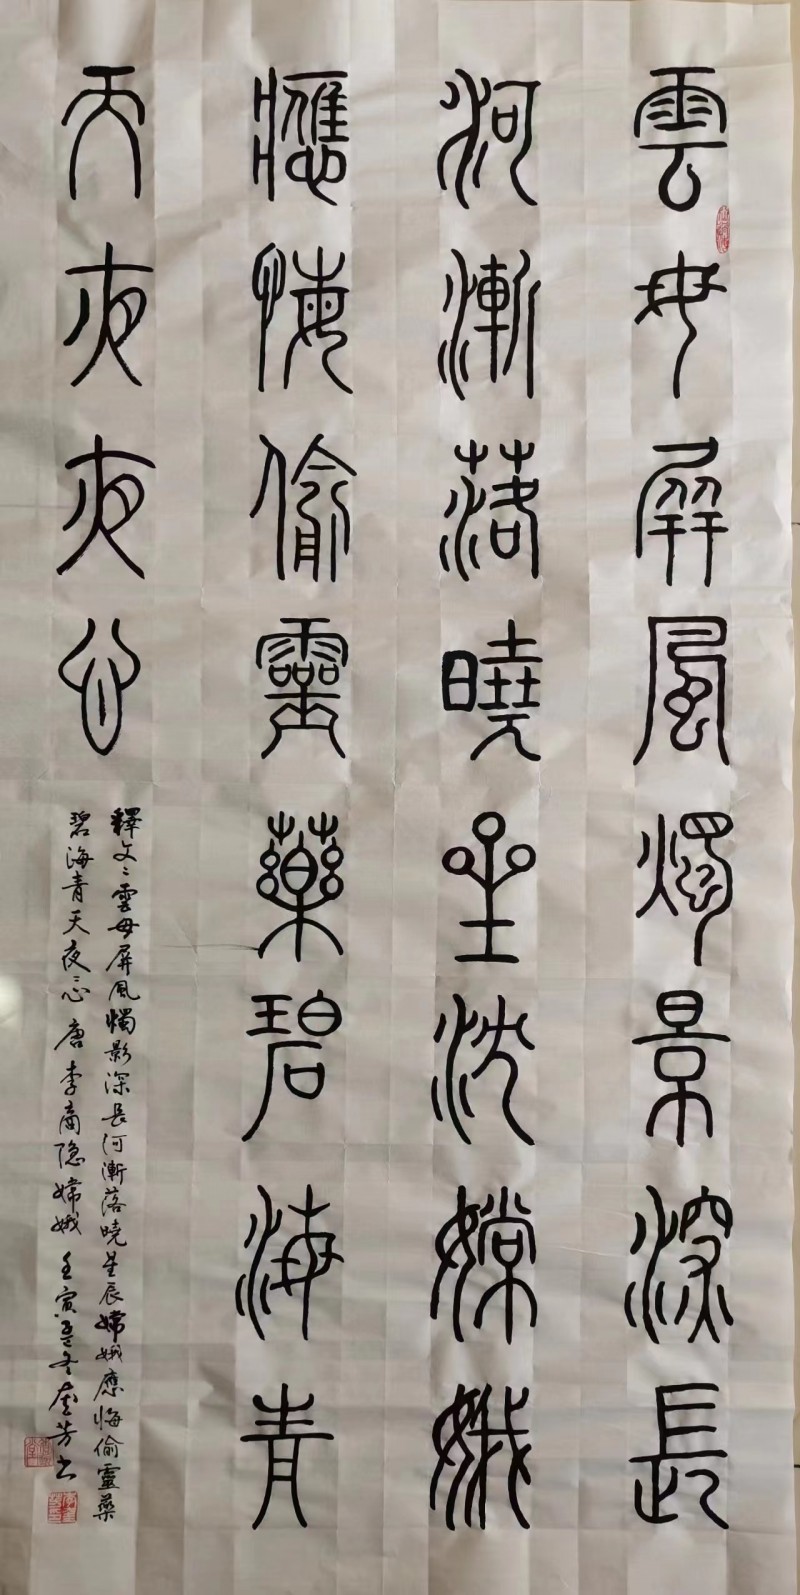 雲母屏風燭景深長
河漸落曉星沈嫦娥
應悔偷靈藥碧海青
天夜夜心
釋文:雲母屏風燭影深長河漸落曉星辰嫦娥應悔偷靈藥
碧海青天夜夜心 唐 李商隐嫦娥 壬寅孟冬 芳书